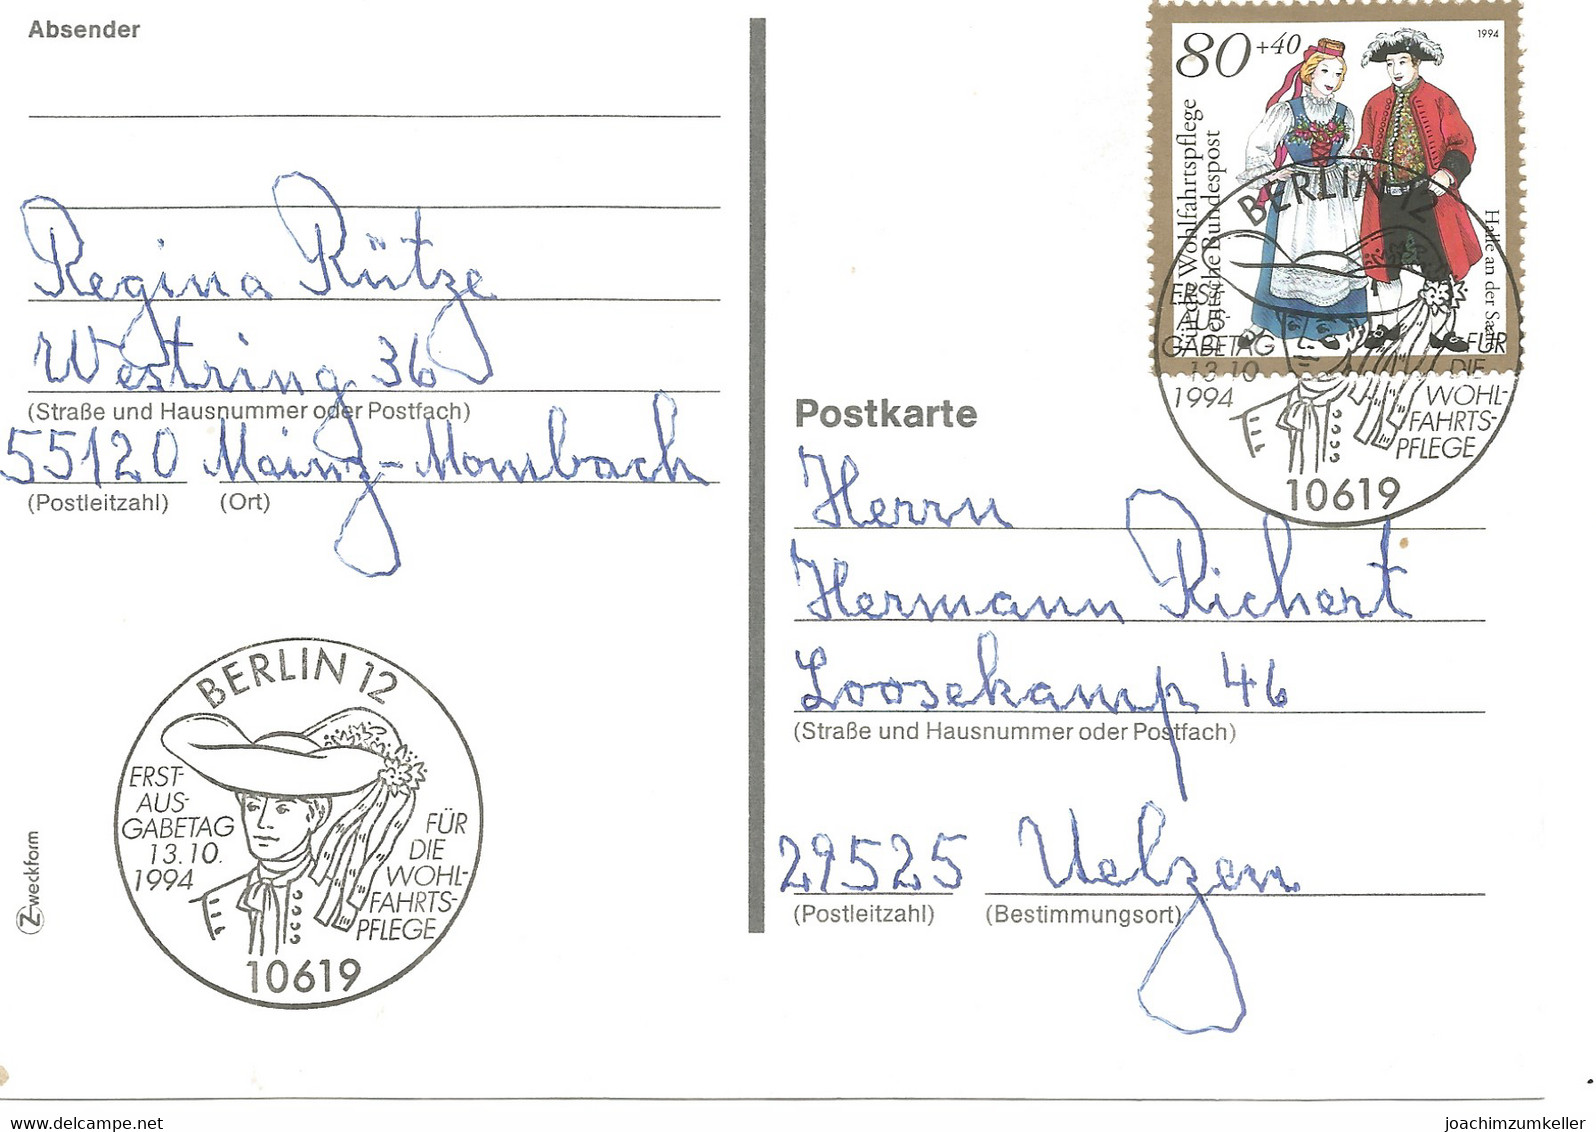 Absender
Regina Rütze
Westring 36
(Straße und Hausnummer oder Postfach)
55120 Mainz-Mombach
(Postleitzahl) (Ort)
BERLIN 12
ERST-
AUS-
GABETAG
13.10.
1994
FÜR
DIE
WOHL-
FAHRTS-
PFLEGE
10619
Zweckform
80+40
1994
Für die Wohlfahrtspflege
Deutsche Bundespost
Halle an der Saale
BERLIN 12
ERST-
AUS-
GABETAG
13.10.
1994
FÜR
DIE
WOHL-
FAHRTS-
PFLEGE
10619
Postkarte
Herrn
Hermann Richert
Loosekamp 46
(Straße und Hausnummer oder Postfach)
29525 Uelzen
(Postleitzahl) (Bestimmungsort)
delcampe.net
joachimzumkeller